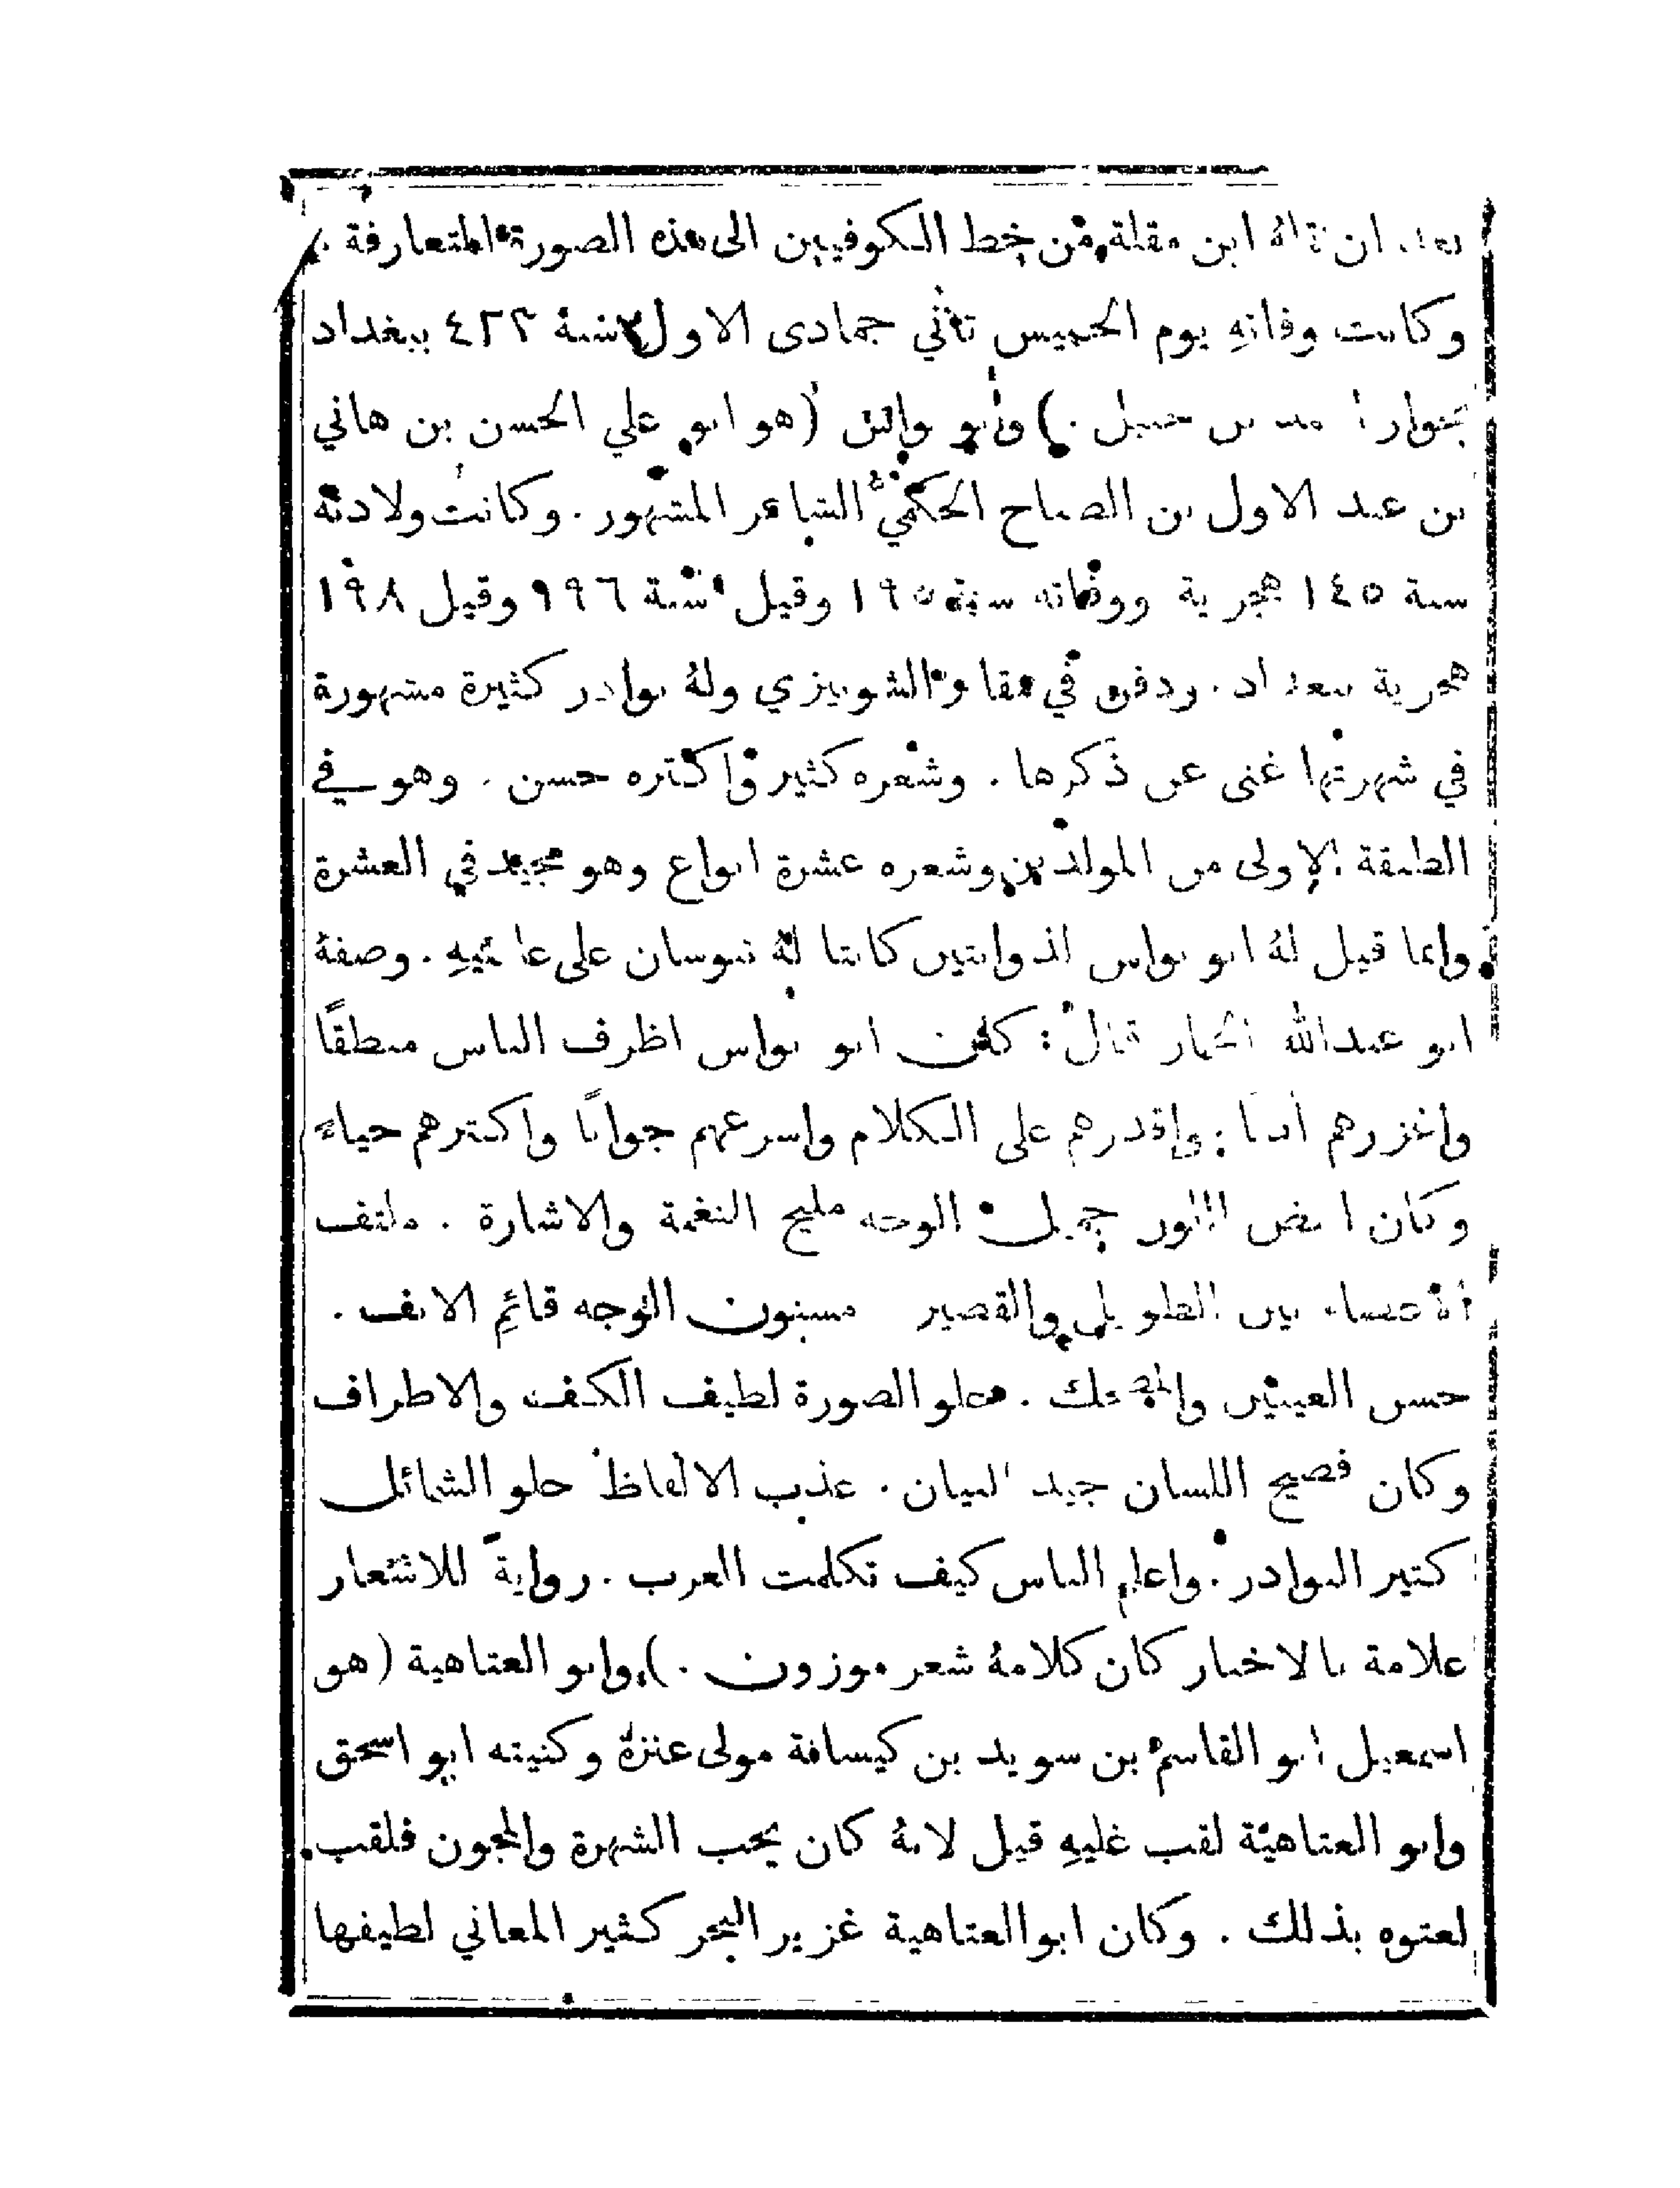 بعد ان نقله ابن مقلة من خط الكوفيين الى هذه الصورة المتعارفة .
وكانت وفاته يوم الخميس ثاني جمادى الاول سنة ٤٢٣ ببغداد
بجوار بن حنبل .) وابو نواس (هو ابو علي الحسن بن هاني
بن عبد الاول بن الصباح الحكمي الشاعر المشهور . وكانت ولادته
سنة ١٤٥ هجرية ووفاته سنة ١٩٥ وقيل سنة ١٩٦ وقيل ١٩٨
هجرية ببغداد . ودفن في مقابر الشونيزي وله نوادر كثيرة مشهورة
في شهرتها غنى عن ذكرها . وشعره كثير واكثره حسن . وهو في
الطبقة الاولى من المولدين وشعره عشرة انواع وهو مجيد في العشرة
وانما قيل لهُ ابو نواس لذوابتين كانتا لهُ تنوسان على عاتقيهِ . وصفهُ
ابو عبدالله الجماز قال : كان ابو نواس اظرف الناس منطقًا
واغزرهم أدبًا : واقدرهم على الكلام واسرعهم جوابًا واكثرهم حياءً
وكان ابيض اللون جميل الوجه مليح النغمة والاشارة . ملتف
الاعضاء بين الطويل والقصير مسنون الوجه قائم الانف .
حسن العينين والمضحك . حلو الصورة لطيف الكف والاطراف
وكان فصيح اللسان جيد البيان . عذب الالفاظ حلو الشمائل
كثير النوادر . واعلم الناس كيف تكلمت العرب . روايةً للاشعار
علامة بالاخبار كان كلامهُ شعر موزون .) وابو العتاهية (هو
اسمعيل ابو القاسم بن سويد بن كيسافة مولى عنزة وكنيته ابو اسحق
وابو العتاهية لقب عليهِ قيل لانهُ كان يحب الشهرة والمجون فلقب
لعتوه بذلك . وكان ابو العتاهية غزير البحر كثير المعاني لطيفها